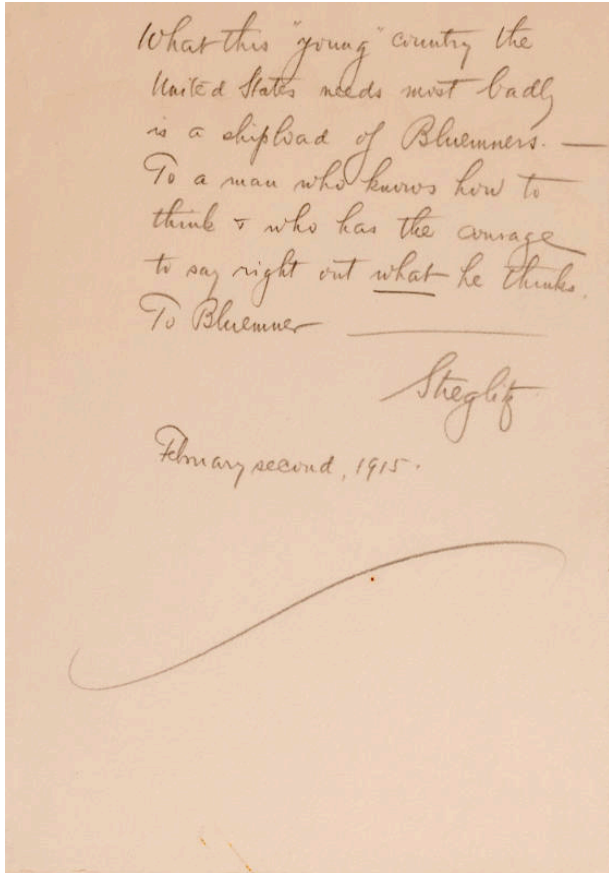 What this "young" country the
United States needs most badly
is a shipload of Bluemners. —
To a man who knows how to
think & who has the courage
to say right out what he thinks.
To Bluemner —
Stieglitz
February second, 1915.